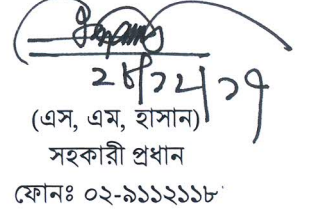 (এস, এম, হাসান)
সহকারী প্রধান
ফোনঃ ০২-৯১১২১১৮